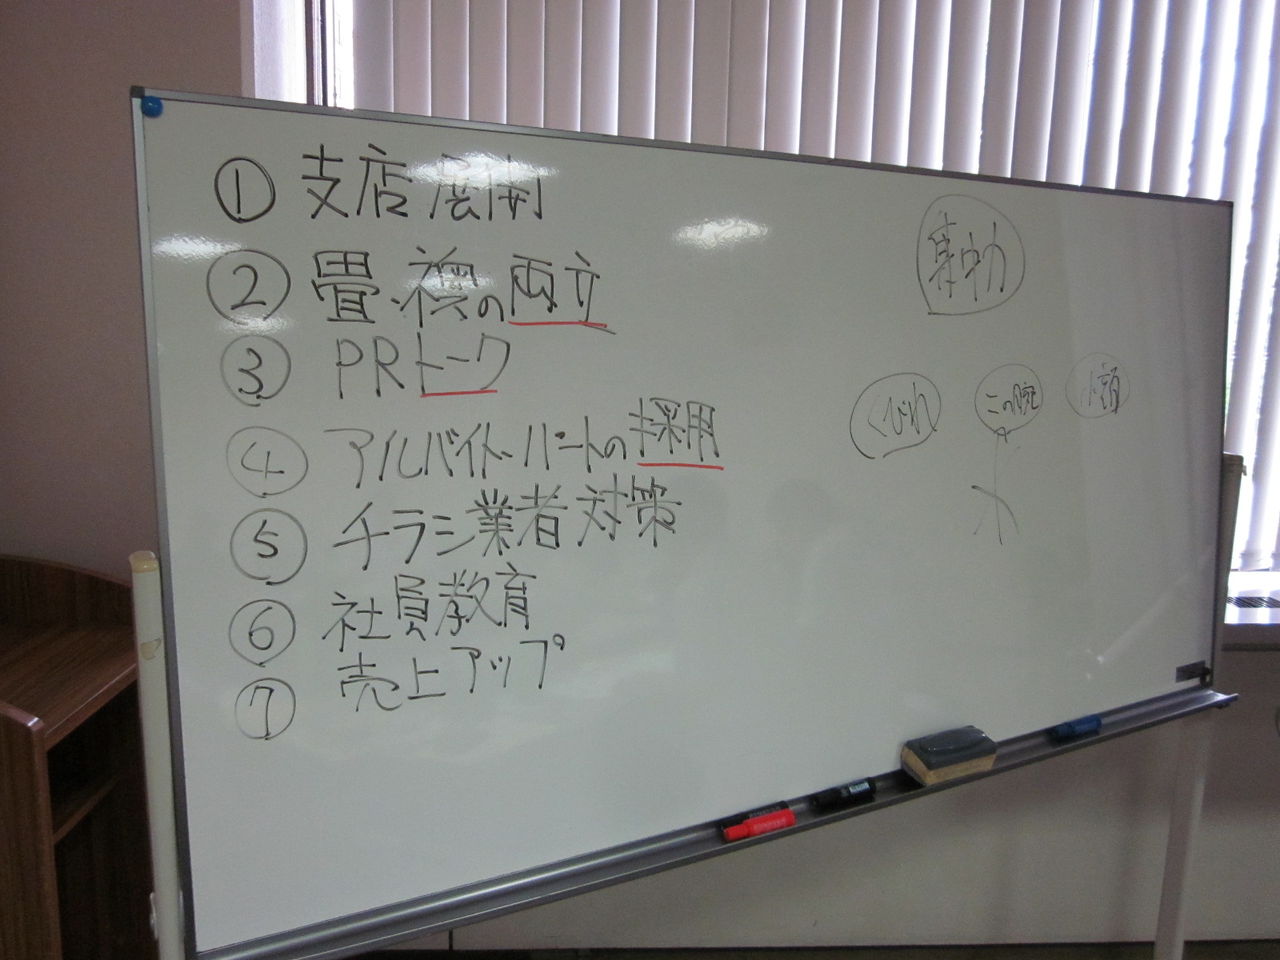 ① 支店展開
② 畳・襖の両立
③ PRトーク
④ アルバイト・パートの採用
⑤ チラシ業者対策
⑥ 社員教育
⑦ 売上アップ
集中力
くびれ
この腕
小顔